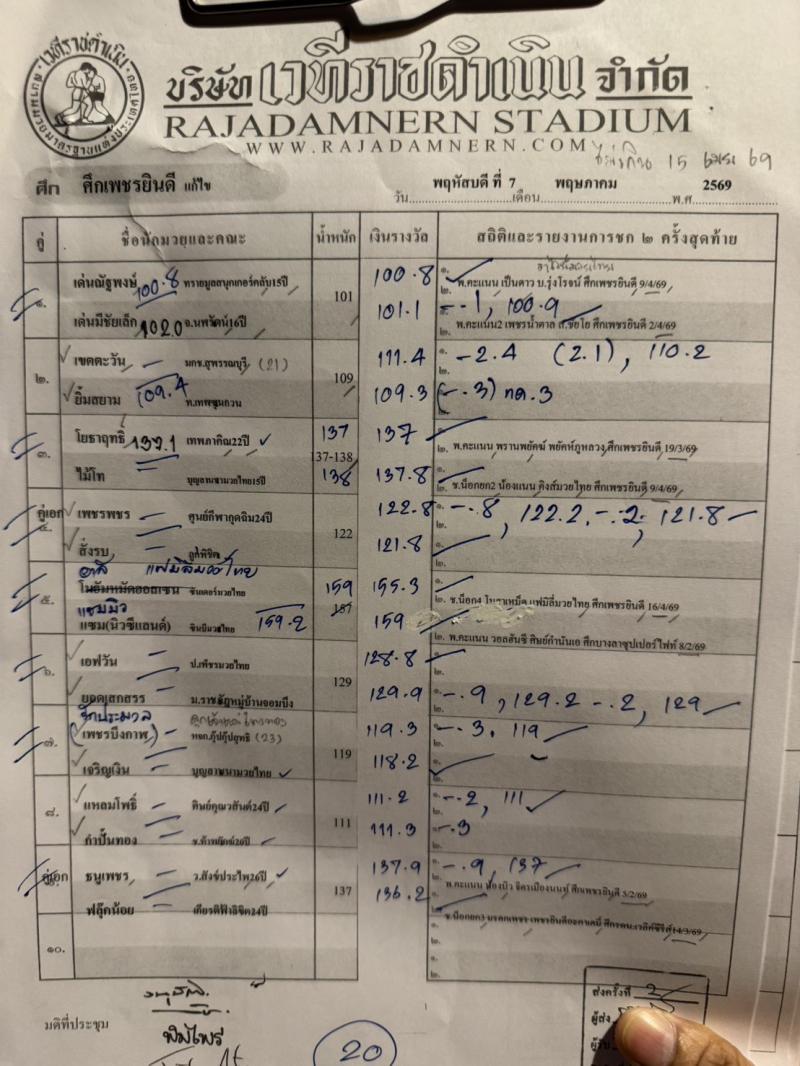 บริษัท เวทีราชดำเนิน จำกัด
RAJADAMNERN STADIUM
WWW.RAJADAMNERN.COM
15 69
ศึก ศึกเพชรยินดี แก้ไข
วัน พฤหัสบดี ที่ 7 เดือน พฤษภาคม พ.ศ. 2569
คู่ ชื่อนักมวยและคณะ น้ำหนัก เงินรางวัล สถิติและรายงานการชก ๒ ครั้งสุดท้าย
๑. เด่นณัฐพงษ์ 100.8 ทรายมูลสนุกเกอร์คลับ15ปี 101 100.8 ๑. พ.คะแนน เป็นดาว บ.รุ่งโรจน์ ศึกเพชรยินดี 9/4/69
เด่นมีชัยเล็ก 102.0 จ.นพรัตน์16ปี 101.1 -.1, 100.9
๒. พ.คะแนน2 เพชรน้ำตาล ส.ชัยโย ศึกเพชรยินดี 2/4/69
๒. เขตตะวัน มกช.สุพรรณบุรี (21) 109 111.4 -2.4 (2.1), 110.2
ยิ้มสยาม 109.4 ท.เทพชุกวน 109.3 (-.3) ทด.3
๓. โยธาฤทธิ์ 137.1 เทพภาคิณ22ปี 137 137
137-138 พ.คะแนน พรานพยัคฆ์ พยัคฆ์ภูหลวง ศึกเพชรยินดี 19/3/69
ไม้โท บุญลานนามวยไทย15ปี 138 137.8
ช.น็อกยก2 น้องแนน คิงส์มวยไทย ศึกเพชรยินดี 9/4/69
คู่เอก ๔. เพชรพชร ศูนย์กีฬากุดฉิม24ปี 122 122.8 -.8, 122.2, -.2, 121.8
สั่งรบ ลูกพิชิต 121.8
แฟมิลี่มวยไทย
๕. โมฮัมหมัดฮอสเซน ซันเดอร์มวยไทย 159 155.3
แซมมิว 157
แซม(นิวซีแลนด์) ซินบีมวยไทย 159.2 159
แฟมิลี่มวยไทย ศึกเพชรยินดี 16/4/69
พ.คะแนน วอลฮันซี ศิษย์กำนันเอ ศึกบางลาซุปเปอร์ไฟท์ 8/2/69
๖. เอฟวัน ป.เพชรมวยไทย 129 128.8
ยอดเสกสรร ม.ราชภัฏหมู่บ้านจอมบึง 129.9 -.9, 129.2 -.2, 129
จักประมวล
๗. (เพชรบึงกาฬ) หจก.กุ๊ปกุ๊ปสุทธิ (23) 119 119.3 -.3, 119
เจริญเงิน บุญลานนามวยไทย 118.2
๘. แหลมโพธิ์ ศิษย์คุณวสันต์24ปี 111 111.2 -.2, 111
กำปั้นทอง 20ปี 111.3 -.3
คู่เอก ธนูเพชร ว.สังข์ประไพ26ปี 137 137.9 -.9, 137
พ.คะแนน ศึกเพชรยินดี 5/2/69
ฟลุ๊กน้อย เกียรติฟ้าลิขิต24ปี 136.2
14/3/69
๑๐.
มติที่ประชุม
พิมไพร
20
ส่งครั้งที่ 2
ผู้ส่ง